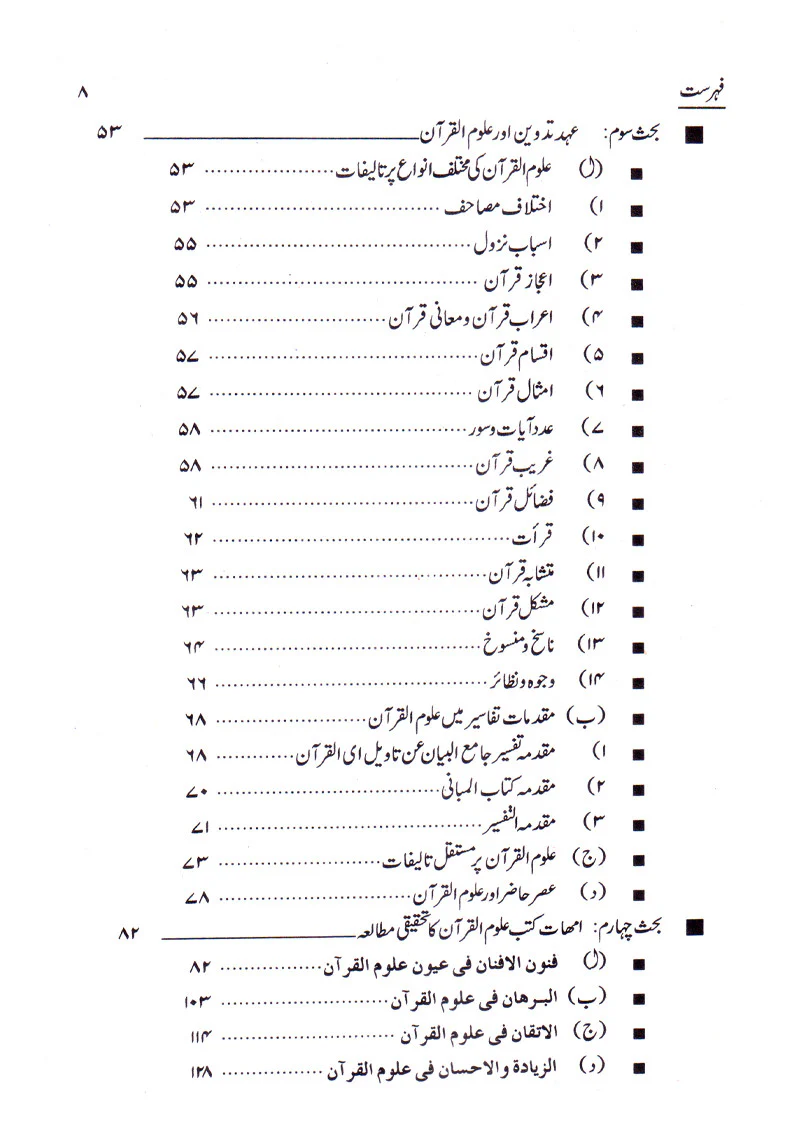 فہرست ۸
■ بحث سوم: عہد تدوین اور علوم القرآن ______ ۵۳
■ (ا) علوم القرآن کی مختلف انواع پر تالیفات ........ ۵۳
■ ۱) اختلاف مصاحف ........ ۵۳
■ ۲) اسباب نزول ........ ۵۵
■ ۳) اعجاز قرآن ........ ۵۵
■ ۴) اعراب قرآن ومعانی قرآن ........ ۵۶
■ ۵) اقسام قرآن ........ ۵۷
■ ۶) امثال قرآن ........ ۵۷
■ ۷) عدد آیات وسور ........ ۵۸
■ ۸) غریب قرآن ........ ۵۸
■ ۹) فضائل قرآن ........ ۶۱
■ ۱۰) قرأت ........ ۶۲
■ ۱۱) متشابہ قرآن ........ ۶۳
■ ۱۲) مشکل قرآن ........ ۶۳
■ ۱۳) ناسخ ومنسوخ ........ ۶۴
■ ۱۴) وجوہ ونظائر ........ ۶۶
■ (ب) مقدمات تفاسیر میں علوم القرآن ........ ۶۸
■ ۱) مقدمہ تفسیر جامع البیان عن تاویل ای القرآن ........ ۶۸
■ ۲) مقدمہ کتاب المبانی ........ ۷۰
■ ۳) مقدمہ التفسیر ........ ۷۱
■ (ج) علوم القرآن پر مستقل تالیفات ........ ۷۳
■ (د) عصر حاضر اور علوم القرآن ........ ۷۸
■ بحث چہارم: امہات کتب علوم القرآن کا تحقیقی مطالعہ ______ ۸۲
■ (ا) فنون الافنان فی عیون علوم القرآن ........ ۸۲
■ (ب) البرهان فی علوم القرآن ........ ۱۰۳
■ (ج) الاتقان فی علوم القرآن ........ ۱۱۴
■ (د) الزیادة والاحسان فی علوم القرآن ........ ۱۲۸